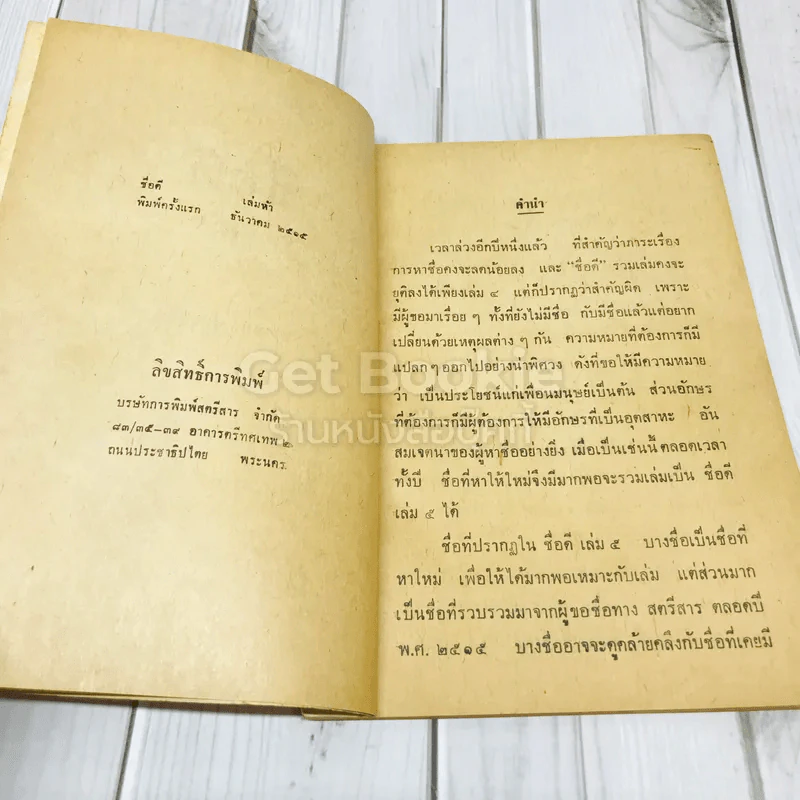 ชื่อดี เล่มห้า
พิมพ์ครั้งแรก ธันวาคม ๒๕๑๕
ลิขสิทธิ์การพิมพ์
บริษัทการพิมพ์สตรีสาร จำกัด
๘๓/๓๕-๓๙ อาคารตรีทศเทพ ๒
ถนนประชาธิปไตย พระนคร
คำนำ
เวลาล่วงอีกปีหนึ่งแล้ว ที่สำคัญว่าภาระเรื่อง
การหาชื่อคงจะลดน้อยลง และ “ชื่อดี” รวมเล่มคงจะ
ยุติลงได้เพียงเล่ม ๔ แต่ก็ปรากฏว่าสำคัญผิด เพราะ
มีผู้ขอมาเรื่อย ๆ ทั้งที่ยังไม่มีชื่อ กับมีชื่อแล้วแต่อยาก
เปลี่ยนด้วยเหตุผลต่าง ๆ กัน ความหมายที่ต้องการก็มี
แปลก ๆ ออกไปอย่างน่าพิศวง ดังที่ขอให้มีความหมาย
ว่า เป็นประโยชน์แก่เพื่อนมนุษย์เป็นต้น ส่วนอักษร
ที่ต้องการก็มีผู้ต้องการให้มีอักษรที่เป็นอุตสาหะ อัน
สมเจตนาของผู้หาชื่ออย่างยิ่ง เมื่อเป็นเช่นนี้ตลอดเวลา
ทั้งปี ชื่อที่หาให้ใหม่จึงมีมากพอจะรวมเล่มเป็น ชื่อดี
เล่ม ๕ ได้
ชื่อที่ปรากฏใน ชื่อดี เล่ม ๕ บางชื่อเป็นชื่อที่
หาใหม่ เพื่อให้ได้มากพอเหมาะกับเล่ม แต่ส่วนมาก
เป็นชื่อที่รวบรวมมาจากผู้ขอชื่อทาง สตรีสาร ตลอดปี
พ.ศ. ๒๕๑๕ บางชื่ออาจจะดูคล้ายคลึงกับชื่อที่เคยมี
Get Bookie
ร้านหนังสือเก็ท